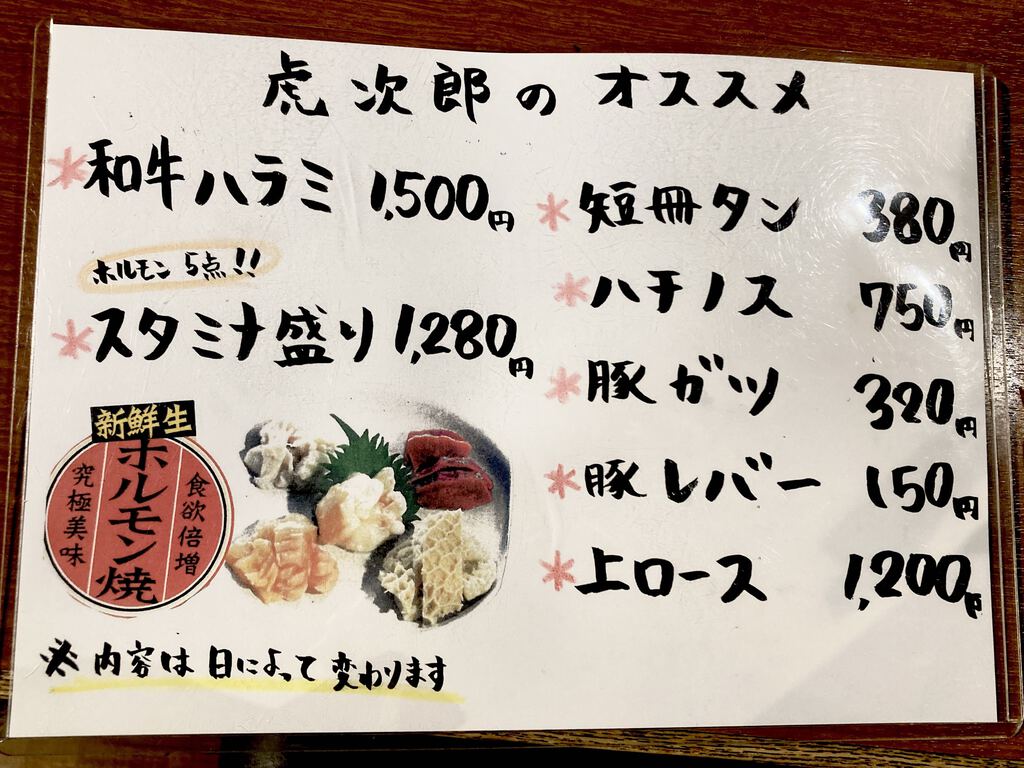 虎次郎のオススメ
*和牛ハラミ 1,500円
ホルモン 5点!!
*スタミナ盛り 1,280円
新鮮生
食欲倍増
ホルモン焼
究極美味
※内容は日によって変わります
*短冊タン 380円
*ハチノス 750円
*豚ガツ 320円
*豚レバー 150円
*上ロース 1,200円